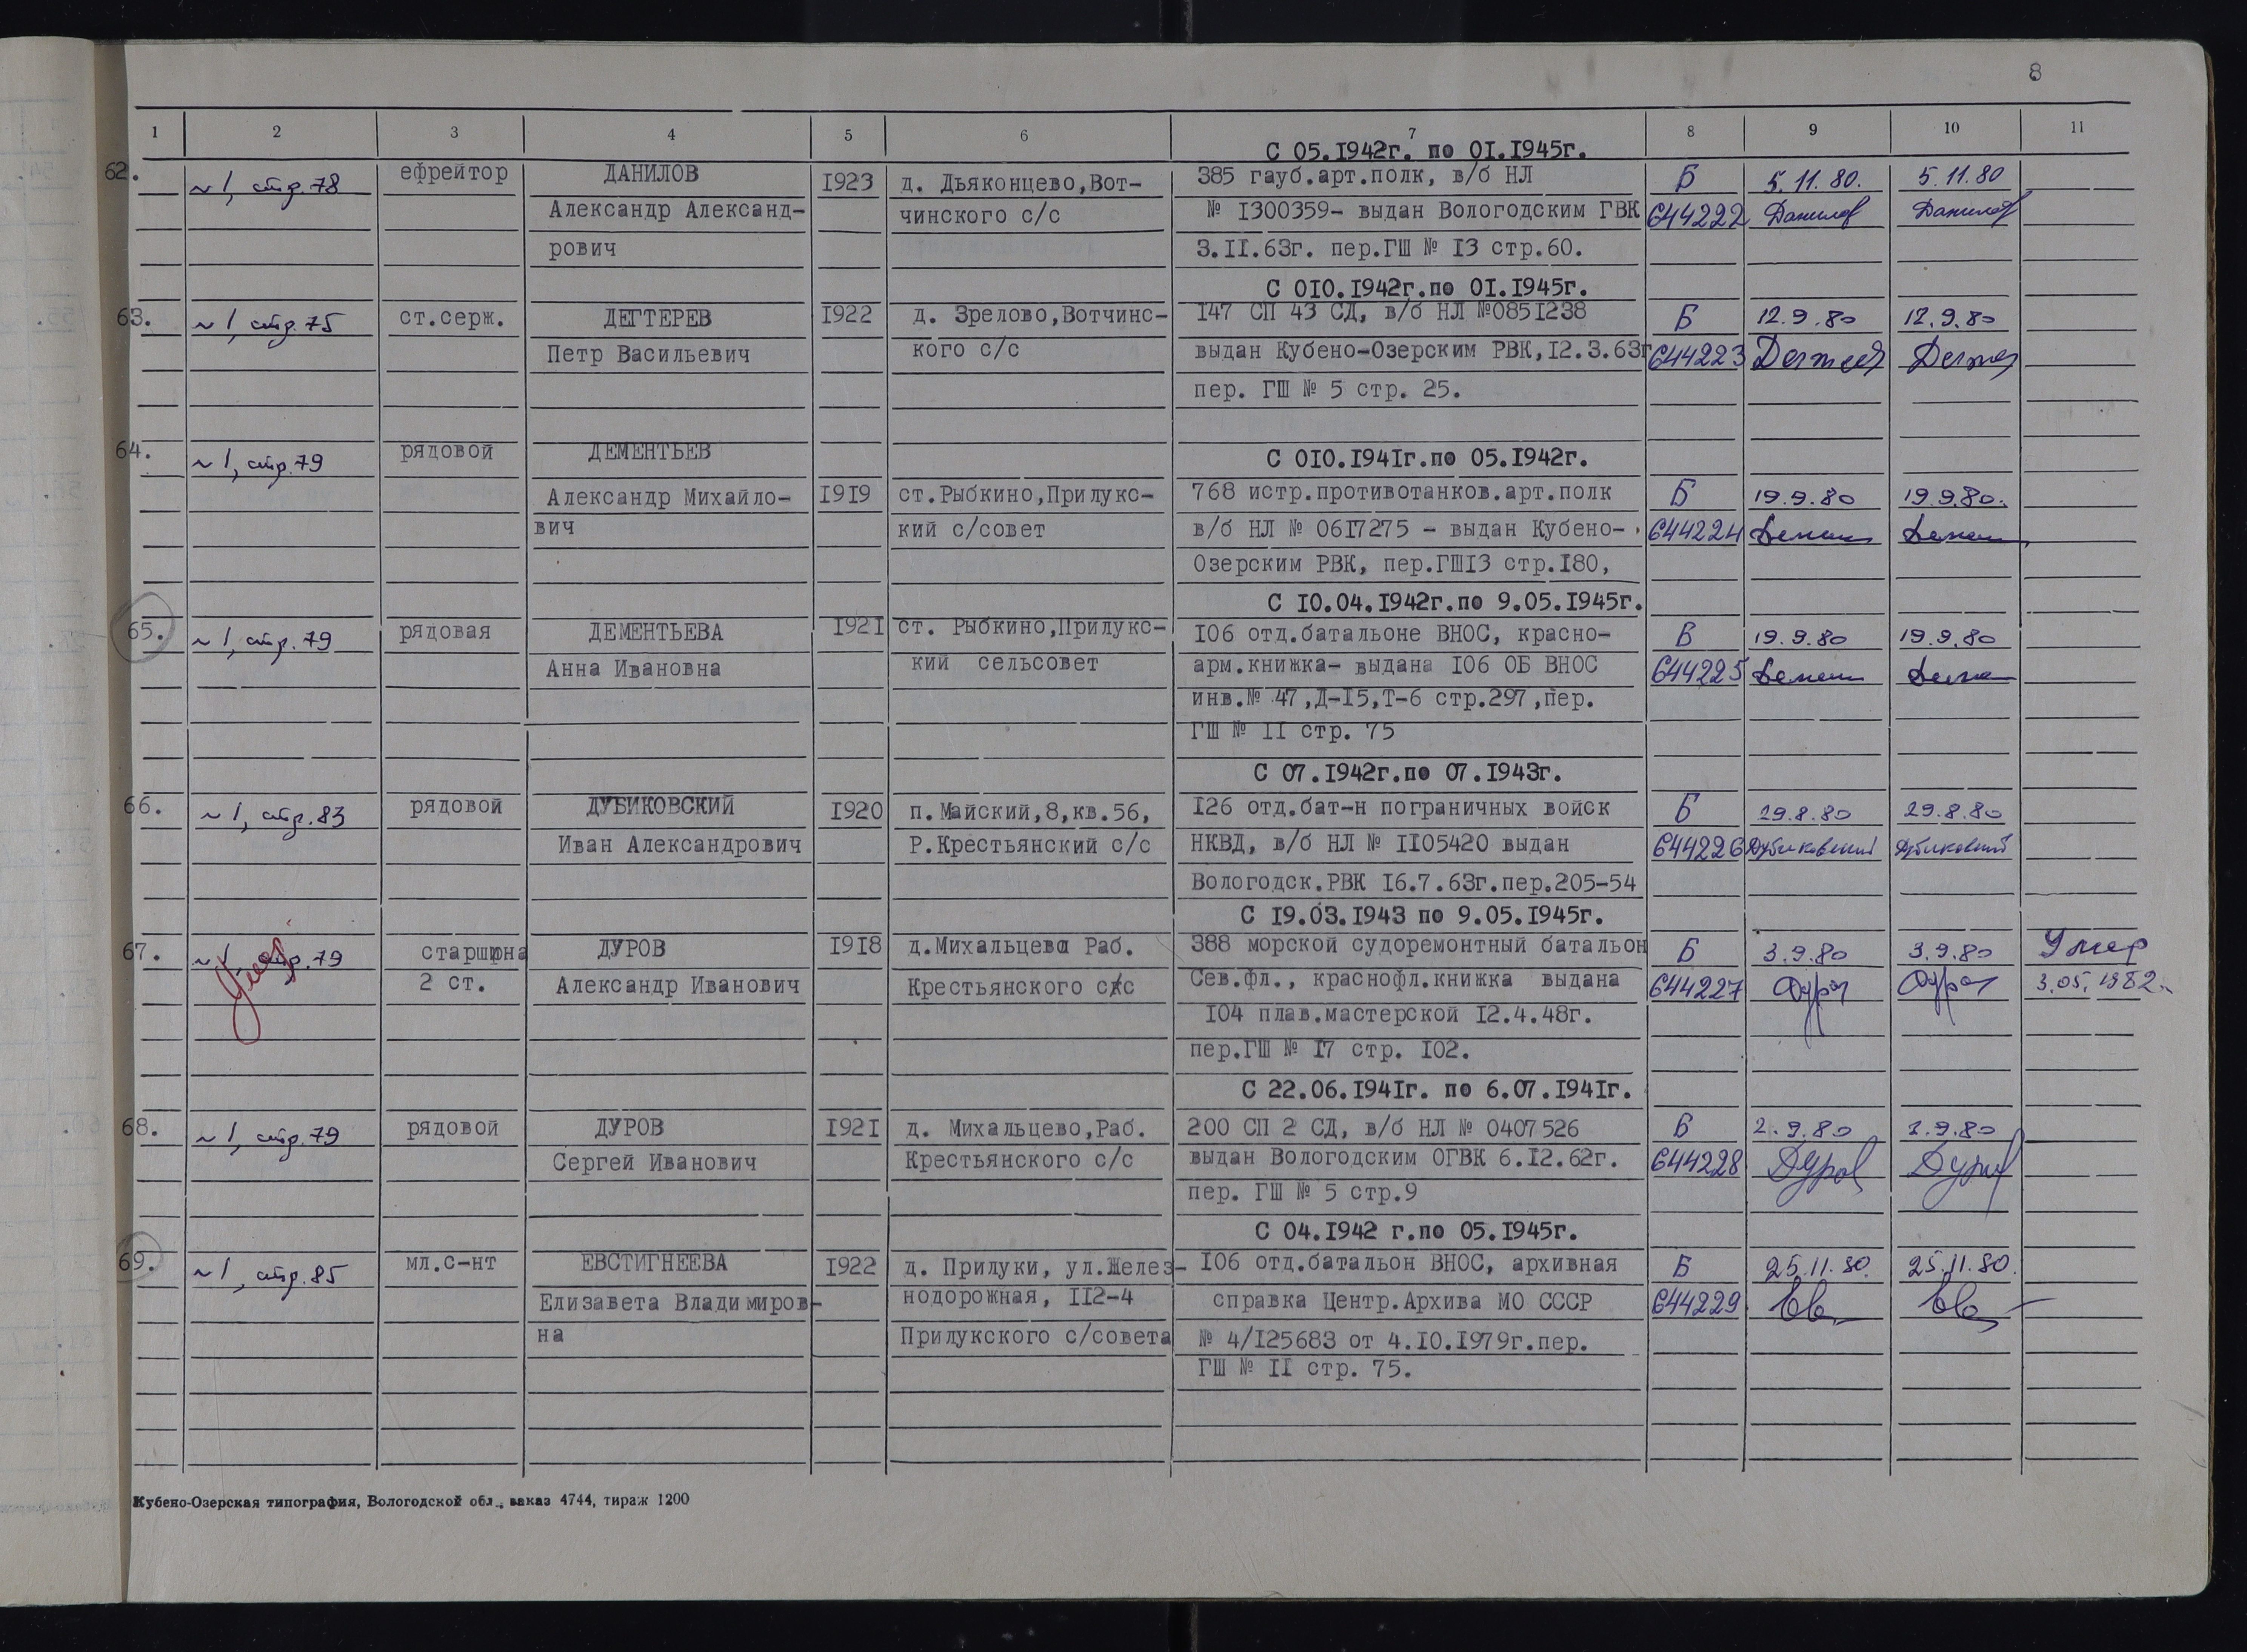 8
1 2 3 4 5 6 7 8 9 10 11
С 05.1942г. по 01.1945г.
62. ~1, стр.78 ефрейтор ДАНИЛОВ 1923 д. Дьяконцево,Вот- 385 гауб.арт.полк, в/б НЛ Б 5.11.80. 5.11.80
Александр Александ- чинского с/с № 1300359- выдан Вологодским ГВК 644222 Данилов Данилов
рович 3.11.63г. пер.ГШ № 13 стр.60.
С 010.1942г.по 01.1945г.
63. ~1, стр.75 ст.серж. ДЕГТЕРЕВ 1922 д. Зрелово,Вотчинс- 147 СП 43 СД, в/б НЛ №0851238 Б 12.9.80 12.9.80
Петр Васильевич кого с/с выдан Кубено-Озерским РВК,12.3.63г 644223
пер. ГШ № 5 стр. 25.
64. ~1, стр.79 рядовой ДЕМЕНТЬЕВ С 010.1941г.по 05.1942г.
Александр Михайло- 1919 ст.Рыбкино,Прилукс- 768 истр.противотанков.арт.полк Б 19.9.80 19.9.80.
вич кий с/совет в/б НЛ № 0617275 - выдан Кубено- 644224
Озерским РВК, пер.ГШ13 стр.180,
С 10.04.1942г.по 9.05.1945г.
65. ~1, стр.79 рядовая ДЕМЕНТЬЕВА 1921 ст. Рыбкино,Прилукс- 106 отд.батальоне ВНОС, красно- Б 19.9.80 19.9.80
Анна Ивановна кий сельсовет арм.книжка- выдана 106 ОБ ВНОС 644225
инв.№ 47,Д-15,Т-6 стр.297,пер.
ГШ № 11 стр. 75
С 07.1942г.по 07.1943г.
66. ~1, стр.83 рядовой ДУБИКОВСКИЙ 1920 п.Майский,8,кв.56, 126 отд.бат-н пограничных войск Б 29.8.80 29.8.80
Иван Александрович Р.Крестьянский с/с НКВД, в/б НЛ № 1105420 выдан 644226 Дубиковский Дубиковский
Вологодск.РВК 16.7.63г.пер.205-54
С 19.03.1943 по 9.05.1945г.
67. ~1, стр.79 Умер старшина ДУРОВ 1918 д.Михальцево Раб. 388 морской судоремонтный батальон Б 3.9.80 3.9.80 Умер
2 ст. Александр Иванович Крестьянского с/с Сев.фл., краснофл.книжка выдана 644227 Дуров Дуров 3.05.1982.
104 плав.мастерской 12.4.48г.
пер.ГШ № 17 стр. 102.
С 22.06.1941г. по 6.07.1941г.
68. ~1, стр.79 рядовой ДУРОВ 1921 д. Михальцево,Раб. 200 СП 2 СД, в/б НЛ № 0407526 Б 2.9.80 2.9.80
Сергей Иванович Крестьянского с/с выдан Вологодским ОГВК 6.12.62г. 644228 Дуров Дуров
пер. ГШ № 5 стр.9
С 04.1942 г.по 05.1945г.
69. ~1, стр.85 мл.с-нт ЕВСТИГНЕЕВА 1922 д. Прилуки, ул.Желез- 106 отд.батальон ВНОС, архивная Б 25.11.80. 25.11.80.
Елизавета Владимиров- нодорожная, 112-4 справка Центр.Архива МО СССР 644229
на Прилукского с/совета № 4/125683 от 4.10.1979г.пер.
ГШ № 11 стр. 75.
Кубено-Озерская типография, Вологодской обл., заказ 4744, тираж 1200